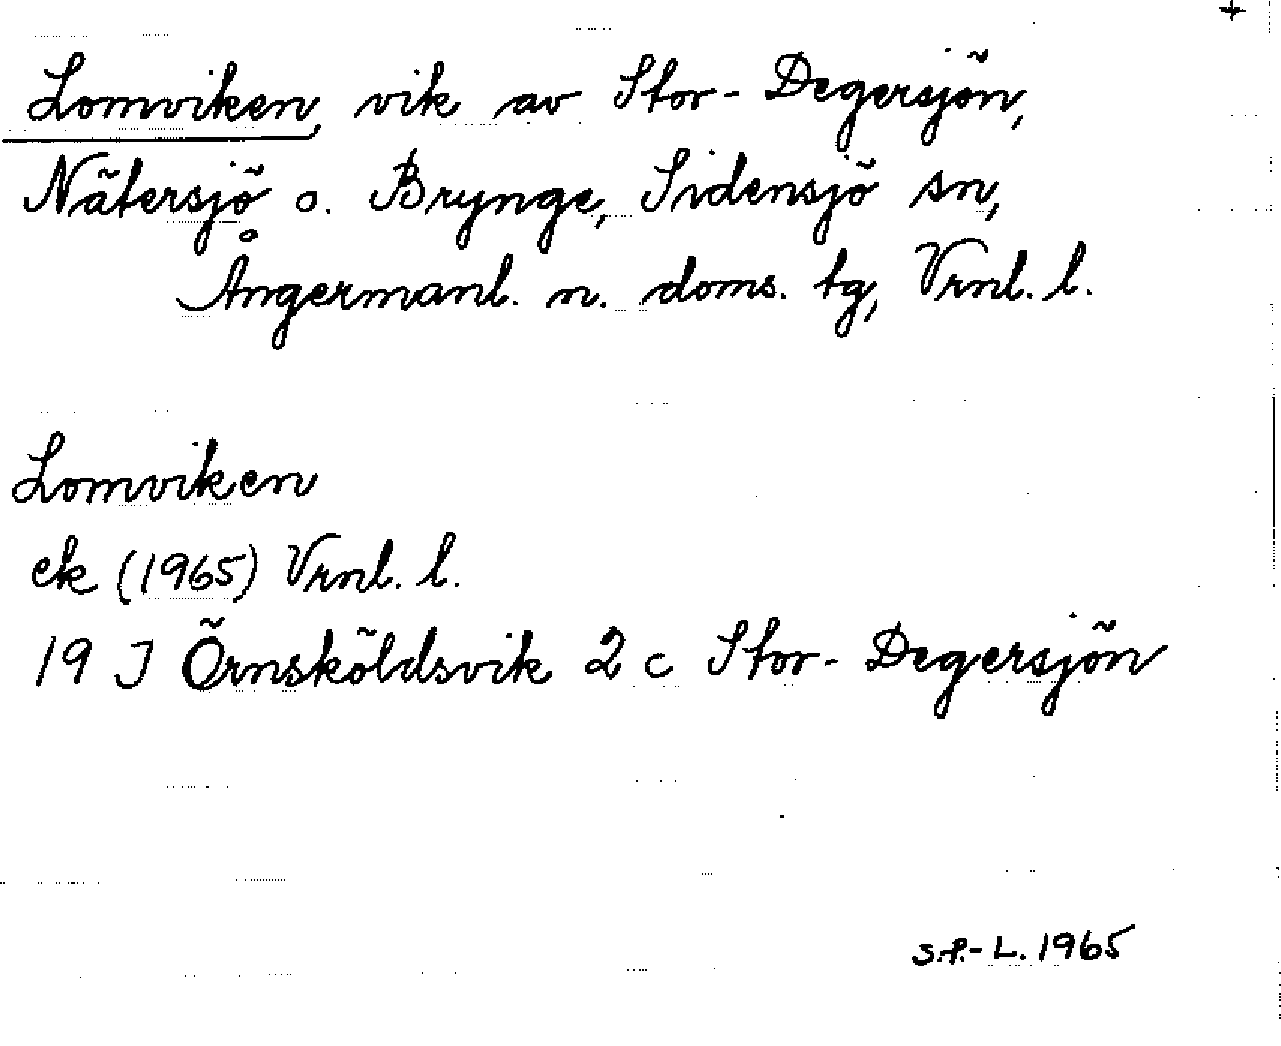 +
Lomviken, vik av Stor-Degersjön,
Nätersjö o. Brynge, Sidensjö sn,
Ångermanl. n. doms. tg, Vrnl. l.
Lomviken
ek (1965) Vrnl. l.
19 J Örnsköldsvik 2 c Stor-Degersjön
S.f.-L. 1965